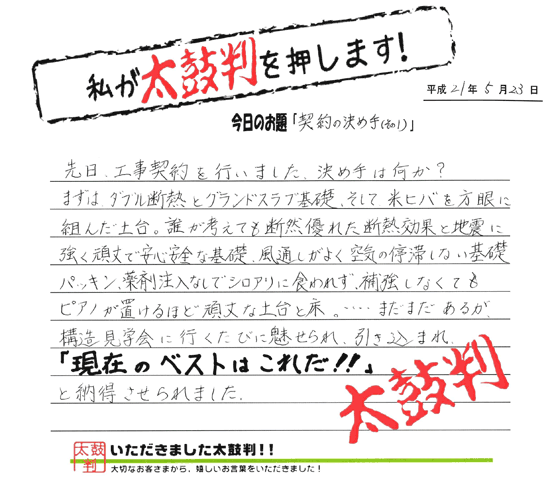 私が太鼓判を押します!
平成21年5月23日
今日のお題「契約の決め手(その1)」
先日、工事契約を行いました。決め手は何か?
まずは、ダブル断熱とグランドスラブ基礎、そして米ヒバを方眼に
組んだ土台。誰が考えても断然優れた断熱効果と地震に
強く頑丈で安心安全な基礎、風通しがよく空気の停滞しない基礎
パッキン、薬剤注入なしでシロアリに食われず、補強しなくても
ピアノが置けるほど頑丈な土台と床。……まだまだあるが、
構造見学会に行くたびに魅せられ、引き込まれ、
「現在のベストはこれだ!!」
と納得させられました。
太鼓判
太鼓判
いただきました太鼓判!!
大切なお客さまから、嬉しいお言葉をいただきました!